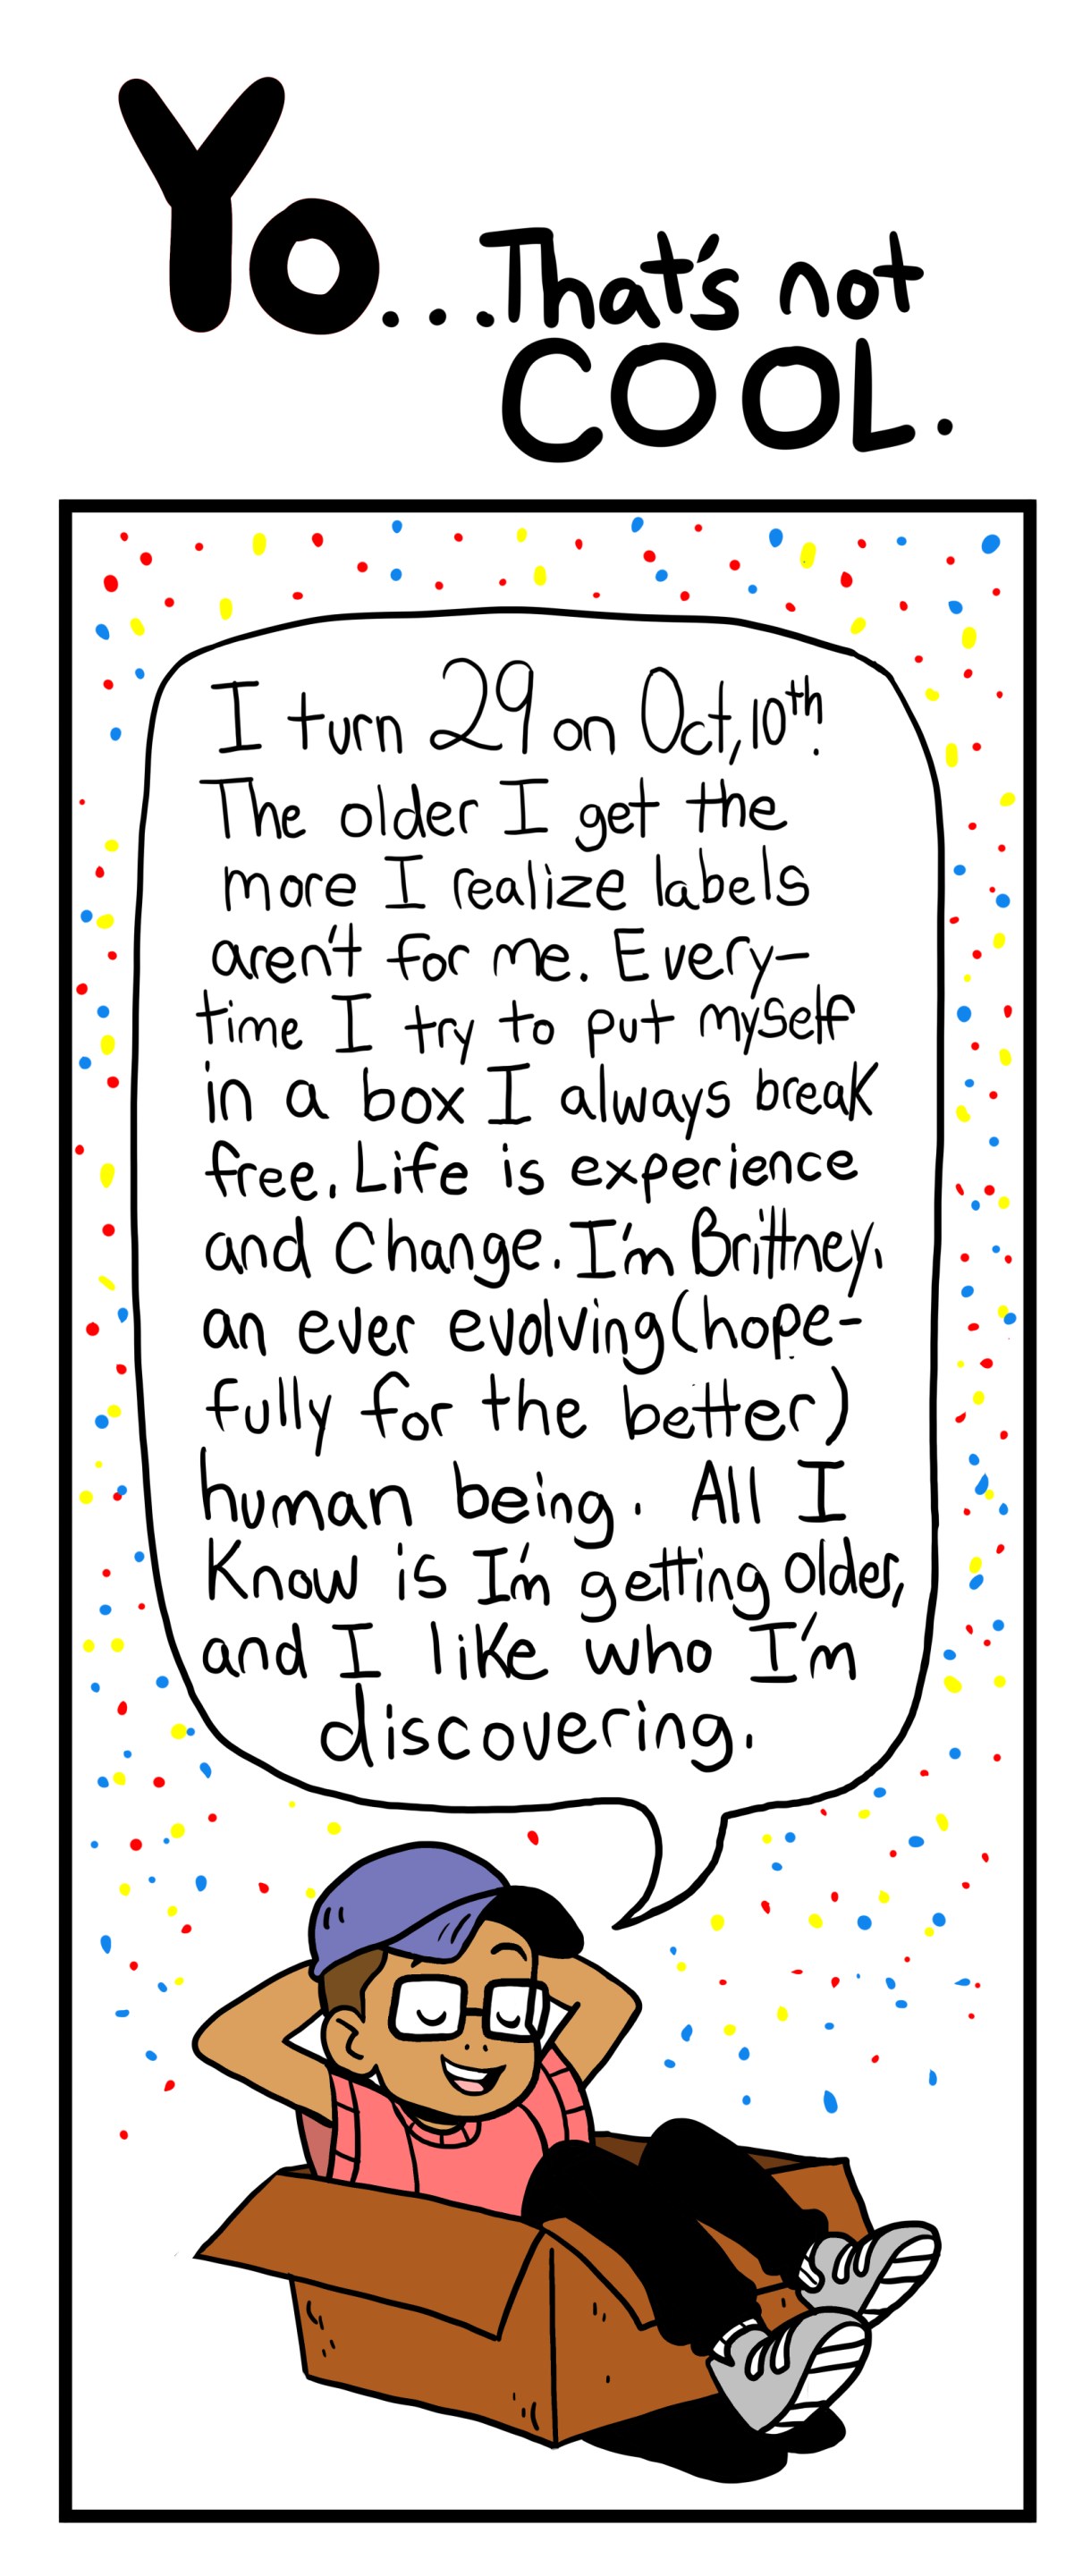 Yo...That's not
COOL.
I turn 29 on Oct, 10th.
The older I get the
more I realize labels
aren't for me. Every-
time I try to put myself
in a box I always break
free. Life is experience
and Change. I'm Brittney,
an ever evolving(hope-
fully for the better)
human being. All I
Know is I'm getting older,
and I like who I'm
discovering.